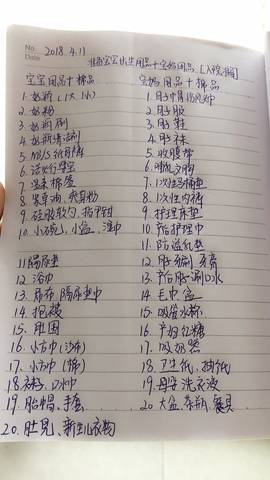 No. 2018.4.11
Date
准备宝宝出生用品+宝妈用品 [入院准备]
宝宝用品+棉品
1.奶瓶 (1大1小)
2.奶粉
3.奶瓶刷
4.奶瓶清洁剂
5.NB/S纸尿裤
6.
7.湿巾 棉签
8. 爽身粉
9.硅胶软勺、指甲钳
10.小碗、小盆、湿巾
11.隔尿垫
12.浴巾
13.尿布 隔尿垫巾
14.抱被
15.肚围
16.小方巾(沙布)
17.小方巾(棉)
18.衣物、口水巾
19.胎帽、手套
20.肚兜、新生儿衣物
宝妈用品+棉品
1.月子
2.月子服
3.月子鞋
4.月子袜
5.收腹带
6.哺乳文胸
7.1次性马桶垫
8.1次性内裤
9.护理床垫
10.产后护理巾
11.防溢乳垫
12.月子牙刷 牙膏
13.产后漱口水
14.毛巾 盆
15.吸管水杯
16.产妇红糖
17.吸奶器
18.卫生纸、抽纸
19.母婴洗衣液
20.大盆、茶瓶、餐具